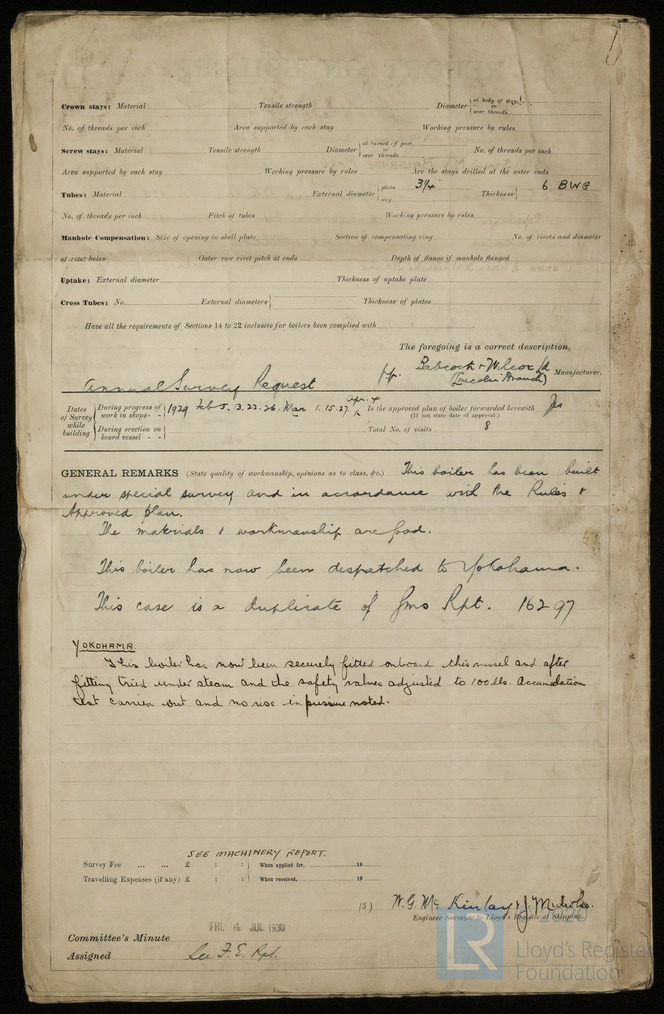 Crown stays: Material Tensile strength Diameter { at body of stay, or over threads
No. of threads per inch Area supported by each stay Working pressure by rules
Screw stays: Material Tensile strength Diameter { at turned off part, or over threads No. of threads per inch
Area supported by each stay Working pressure by rules Are the stays drilled at the outer ends
Tubes: Material External diameter { plain stay 3 1/4 Thickness { 6 BWG
No. of threads per inch Pitch of tubes Working pressure by rules
Manhole Compensation: Size of opening in shell plate Section of compensating ring No. of rivets and diameter
of rivet holes Outer row rivet pitch at ends Depth of flange if manhole flanged
Uptake: External diameter Thickness of uptake plate
Cross Tubes: No. External diameters { Thickness of plates
Have all the requirements of Sections 14 to 22 inclusive for boilers been complied with
The foregoing is a correct description,
Annual Survey Request Babcock & Wilcox Ld Manufacturer.
(Lincoln Branch)
Dates of Survey while building { During progress of work in shops - - 1929 Feb 5. 13. 22. 26. Mar 1. 15. 27. Apr. 4 Is the approved plan of boiler forwarded herewith Yes
(If not state date of approval.)
During erection on board vessel - - Total No. of visits 8
GENERAL REMARKS (State quality of workmanship, opinions as to class, &c.) This boiler has been built
under special survey and in accordance with the Rules &
Approved plan.
The materials & workmanship are good.
This boiler has now been despatched to Yokohama.
This case is a duplicate of Gms Rpt. 16297
YOKOHAMA.
This boiler has now been securely fitted onboard this vessel and after
fitting tried under steam and the safety valves adjusted to 100 lbs. Accumulation
test carried out and no rise in pressure noted.
SEE MACHINERY REPORT.
Survey Fee ... ... £ : : } When applied for, 19
Travelling Expenses (if any) £ : : } When received, 19
(S) W. G. Mc Kinlay & J.
Engineer Surveyor to Lloyd's Register of Shipping.
FRI. 4 JUL 1930
Committee's Minute
Assigned See F. E. Rpt.
LR
Lloyd's Register
Foundation